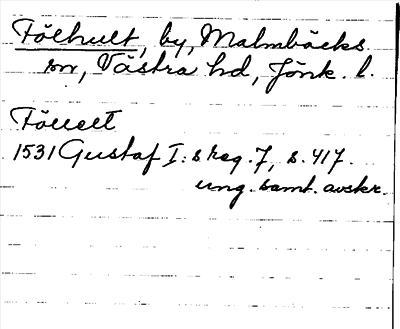 Fölhult, by, Malmbäcks
sn, Västra hd, Jönk. l.
Föuelt
1531 Gustaf I:s reg. 7, s. 417.
ung. samt. avskr.